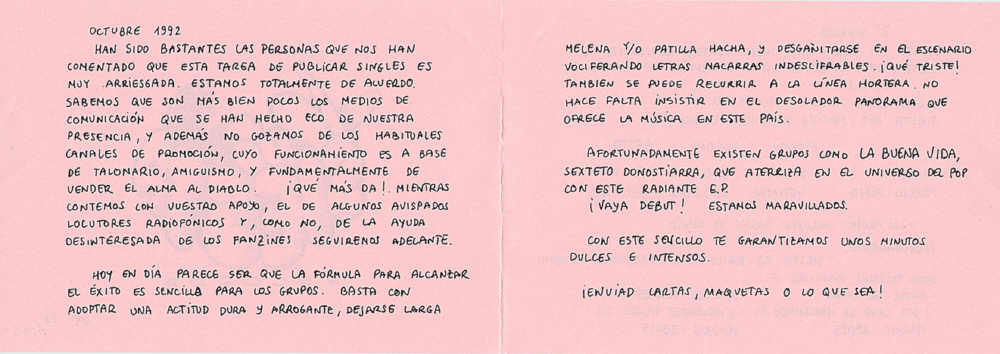 OCTUBRE 1992
HAN SIDO BASTANTES LAS PERSONAS QUE NOS HAN
COMENTADO QUE ESTA TAREA DE PUBLICAR SINGLES ES
MUY ARRIESGADA. ESTAMOS TOTALMENTE DE ACUERDO.
SABEMOS QUE SON MÁS BIEN POCOS LOS MEDIOS DE
COMUNICACIÓN QUE SE HAN HECHO ECO DE NUESTRA
PRESENCIA, Y ADEMÁS NO GOZAMOS DE LOS HABITUALES
CANALES DE PROMOCIÓN, CUYO FUNCIONAMIENTO ES A BASE
DE TALONARIO, AMIGUISMO, Y FUNDAMENTALMENTE DE
VENDER EL ALMA AL DIABLO. ¡QUÉ MÁS DA!. MIENTRAS
CONTEMOS CON VUESTRO APOYO, EL DE ALGUNOS AVISPADOS
LOCUTORES RADIOFÓNICOS Y, COMO NO, DE LA AYUDA
DESINTERESADA DE LOS FANZINES SEGUIREMOS ADELANTE.
HOY EN DÍA PARECE SER QUE LA FÓRMULA PARA ALCANZAR
EL ÉXITO ES SENCILLA PARA LOS GRUPOS. BASTA CON
ADOPTAR UNA ACTITUD DURA Y ARROGANTE, DEJARSE LARGA
MELENA Y/O PATILLA HACHA, Y DESGAÑITARSE EN EL ESCENARIO
VOCIFERANDO LETRAS MACARRAS INDESCIFRABLES. ¡QUÉ TRISTE!
TAMBIÉN SE PUEDE RECURRIR A LA LÍNEA HORTERA. NO
HACE FALTA INSISTIR EN EL DESOLADOR PANORAMA QUE
OFRECE LA MÚSICA EN ESTE PAÍS.
AFORTUNADAMENTE EXISTEN GRUPOS COMO LA BUENA VIDA,
SEXTETO DONOSTIARRA, QUE ATERRIZA EN EL UNIVERSO DEL POP
CON ESTE RADIANTE E.P.
¡VAYA DEBUT! ESTAMOS MARAVILLADOS.
CON ESTE SENCILLO TE GARANTIZAMOS UNOS MINUTOS
DULCES E INTENSOS.
¡ENVIAD CARTAS, MAQUETAS O LO QUE SEA!